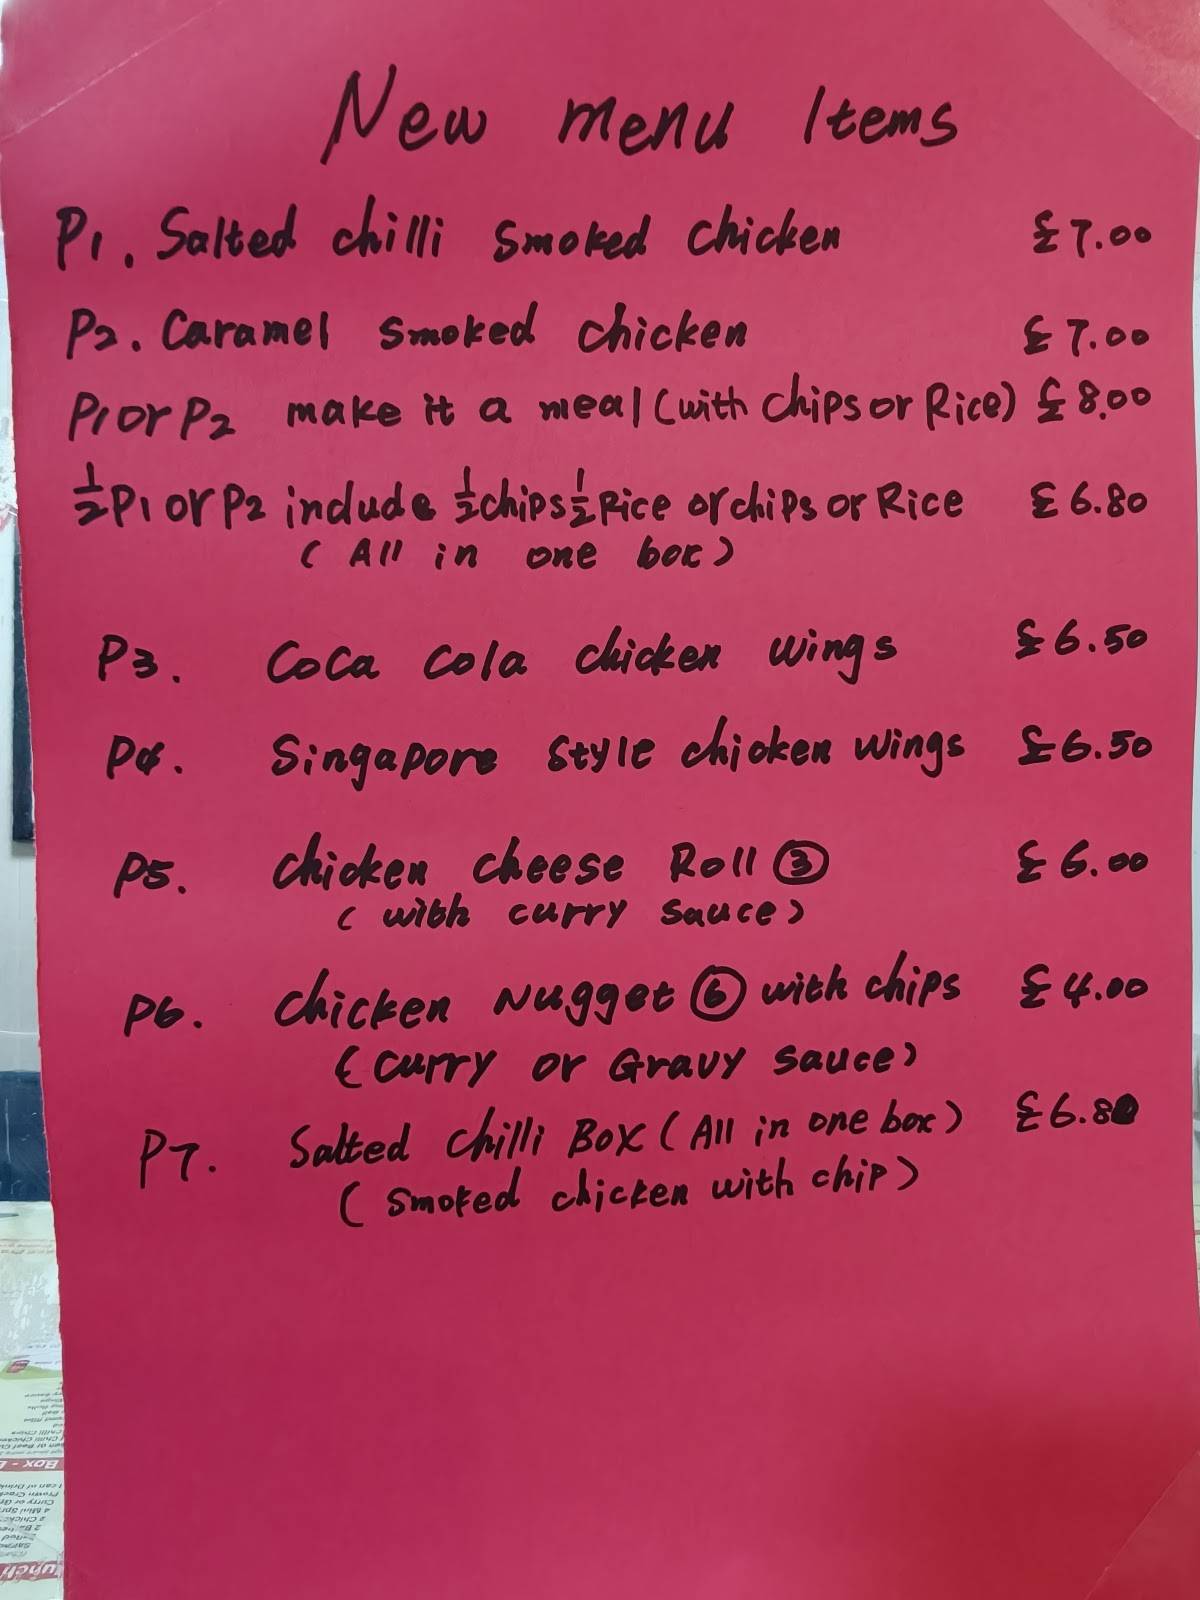 New menu Items
P1. Salted chilli Smoked chicken £7.00
P2. Caramel Smoked chicken £7.00
P1 or P2 make it a meal (with chips or Rice) £8.00
½ P1 or P2 include ½ chips ½ Rice or chips or Rice £6.80
(All in one box)
P3. Coca Cola chicken wings £6.50
P4. Singapore Style chicken wings £6.50
P5. chicken cheese Roll ③ £6.00
(with curry sauce)
P6. chicken Nugget ⑥ with chips £4.00
(curry or Gravy sauce)
P7. Salted chilli Box (All in one box) £6.80
(Smoked chicken with chip)